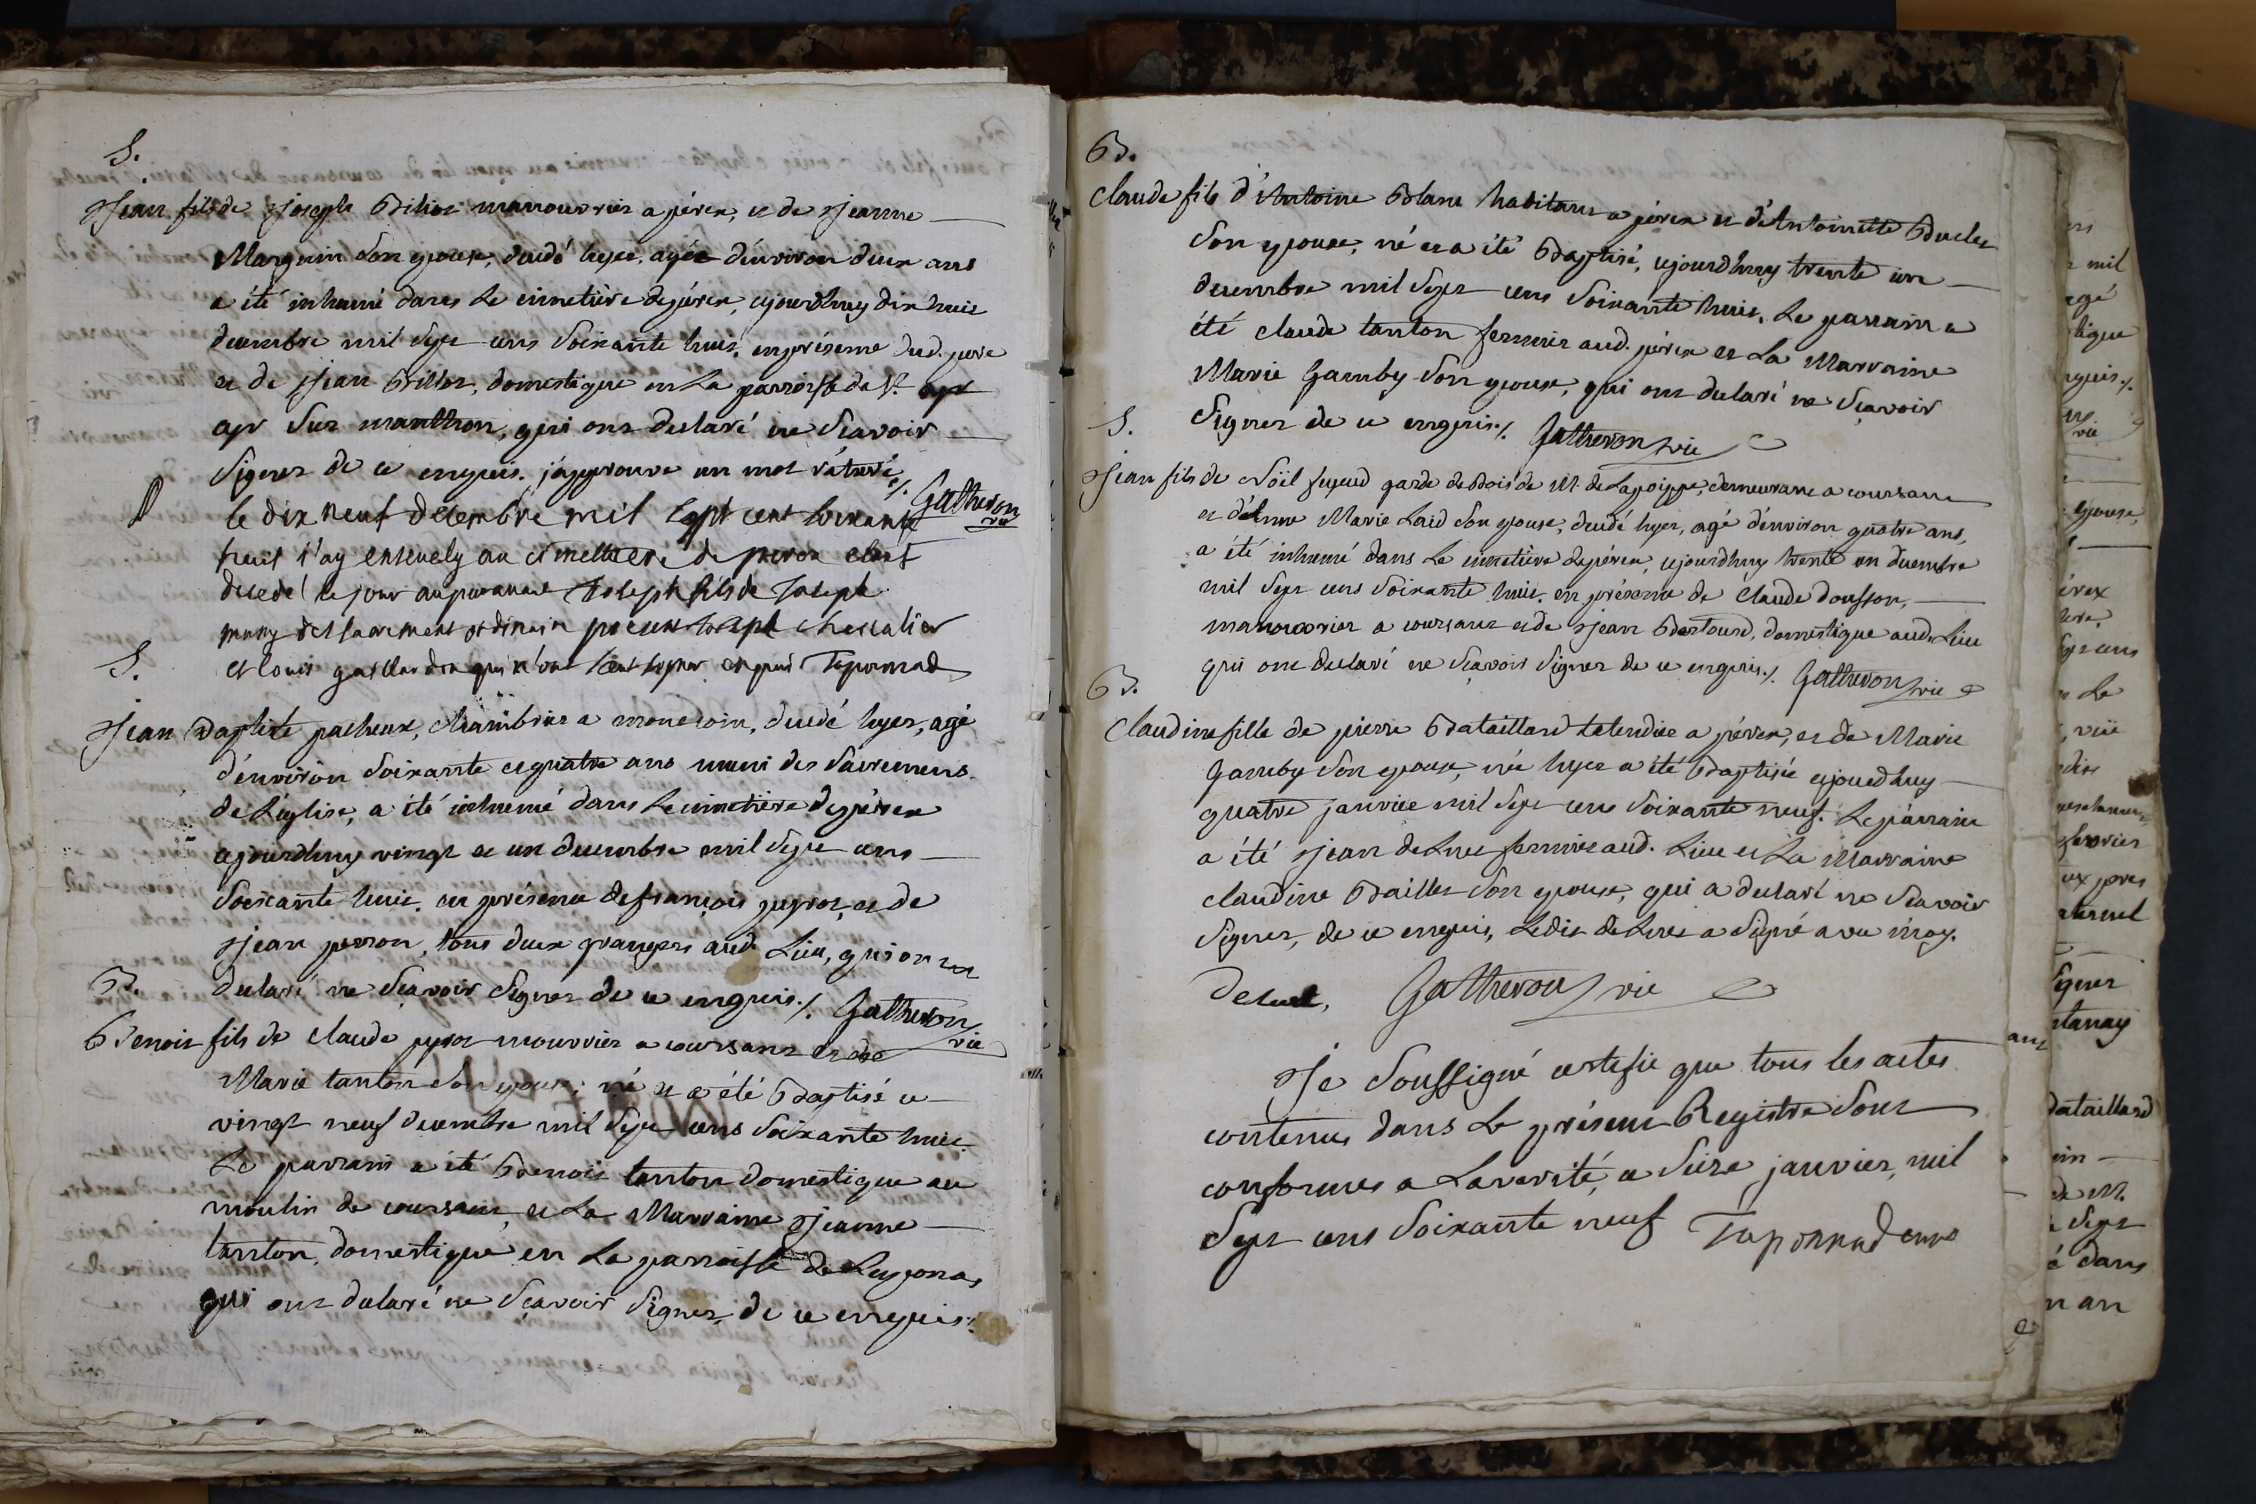 S.
Jean fils de Joseph Billiot manouvrier a pérex, et de Jeanne
Marguin son epouse, decedé hyer, agée d'environ deux ans
a été inhumé dans Le cimetière depérex, cejourdhuy dix huit
decembre mil Sept cens Soixante huit, en présence dud. pere
et de Jean Billiot, domestique en La parroisse de St.
cyr Sur manthon, qui ont declaré ne Scavoir
Signer de ce enquis. j'approuve un mot raturé ./. Gatheron
vic
le dix neuf decembre mil sept cent soixante
huit j'ay ensevely au cimettiere de perex
decedé le jour auparavant Joseph fils de Joseph
muny des sacrements present Joseph chevalier
et louis gaillardon qui n'ont sceut signer enquis Taponnad
S.
Jean Baptiste pacheux, chambrier a monesoin, decedé hyer, agé
d'environ Soixante equatre ans muni des Sacremens
de L'eglise, a été inhumé dans Lecimetière depérex
cejourdhuy vingt et un decembre mil Sept cens
Soixante huit, en présence defrançois pyrot, et de
Jean perron, tous deux grangers aud. Lieu, qui ont
declaré ne Sçavoir Signer de ce enquis ./. Gatheron
vic
B.
Benoit fils de Claude pyrot mouvrier a coursant et de
Marie tanton Son epouse, né et a été Baptisé ce
vingt neuf decembre mil Sept cens Soixante huit
Le parrain a été Benoit tanton domestique au
moulin de coursant, et La Marraine Jeanne
tanton, domestique en La parroisse de Luponas,
qui ont declaré ne Sçavoir Signer de ce enquis ./.
B.
Claude fils d'Antoine Blanc habitant a pérex et d'Antoinette Buclet
Son epouse, né et a été Baptisé, cejourdhuy trente un
decembre mil Sept cens Soixante huit. Le parrain a
été claude tanton fermier aud. pérex et La Marraine
Marie Gamby Son epouse, qui ont declaré ne Sçavoir
Signer de ce enquis ./. Gatheron vic
S.
Jean fils de Noël garde de Bois de M. de Lapoippe, demeurant a coursant
et d'Anne Marie Laid Son epouse, decedé hyer, agé d'environ quatre ans,
a été inhumé dans Le cimetière depérex, cejourdhuy trente un decembre
mil Sept cens Soixante huit. en présence de Claude dousson,
manouvrier a coursant et de Jean Bertoud, domestique aud. Lieu
qui ont declaré ne Sçavoir Signer de ce enquis ./. Gatheron vic
B.
Claudine fille de pierre Bataillard a pérex, et de Marie
Gamby Son epouse, née hyer a été Baptisée cejourdhuy
quatre janvier mil Sept cens Soixante neuf. Le parrain
a été Jean deLuet fermier aud. Lieu et La Marraine
claudine Baillet Son epouse, qui a declaré ne Scavoir
Signer, de ce enquis, Ledit deLuet a Signé avec moy.
Deluet, Gatheron vic
Je Soussigné certifie que tous les actes
contenus dans Le présent Registre Sont
conformes a Laverité, a Seize janvier, mil
Sept cens Soixante neuf Taponnad curé
mil
agé
ans
epouse,
érex
Le
février
Signer
Bataillard
de M.
Sept
é dans
n an